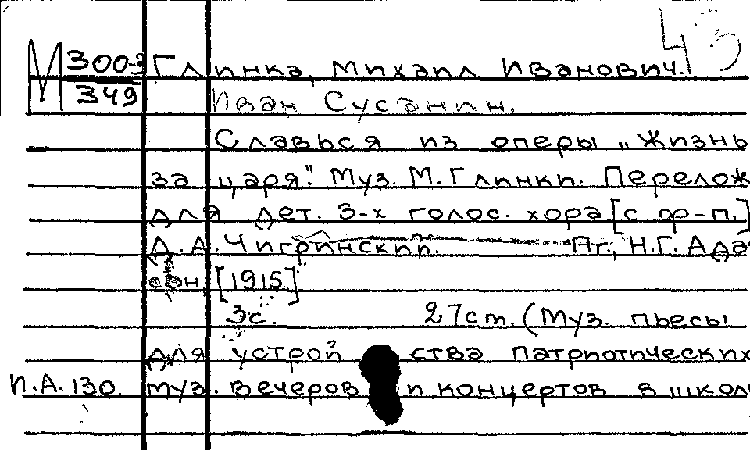 43
М 300-3 Глинка, Михаил Иванович.
349 Иван Сусанин.
Славься из оперы „Жизнь
за царя". Муз. М. Глинки. Перелож
для дет. 3-х голос. хора [с ф-п.]
А. А. Чигринский. Пг., Н. Г. Ада
[1915]
3с. 27 cm. (Муз. пьесы
для устрой ства патриотических
П.А. 130. муз. вечеров и концертов в школ